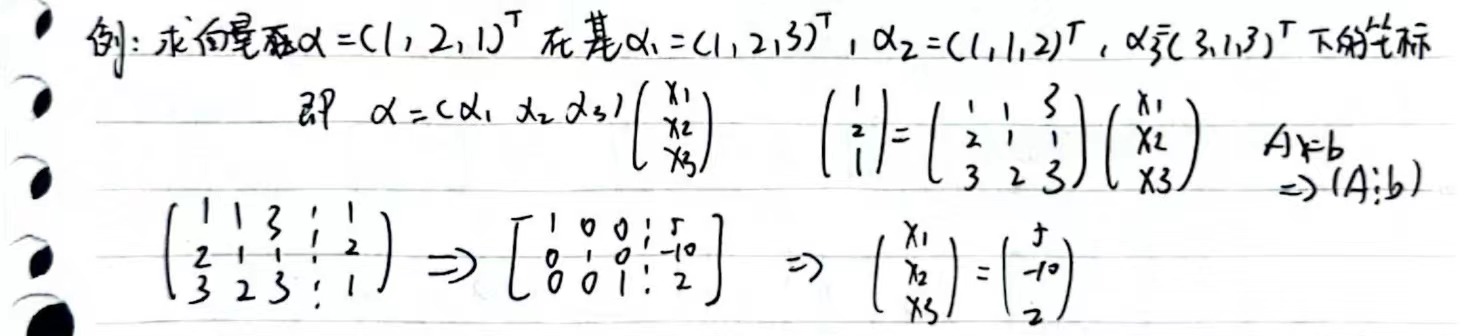 例: 求向量α=(1,2,1)ᵀ 在基α₁=(1,2,3)ᵀ, α₂=(1,1,2)ᵀ, α₃=(3,1,3)ᵀ 下的坐标
即 α=(α₁ α₂ α₃)(x₁ x₂ x₃) (1 2 1) = (1 1 3 2 1 1 3 2 3)(x₁ x₂ x₃) Ax=b
⇒(A⋮b)
(1 1 3 ⋮ 1 2 1 1 ⋮ 2 3 2 3 ⋮ 1) ⇒ [1 0 0 ⋮ 5 0 1 0 ⋮ -10 0 0 1 ⋮ 2] ⇒ (x₁ x₂ x₃) = (5 -10 2)